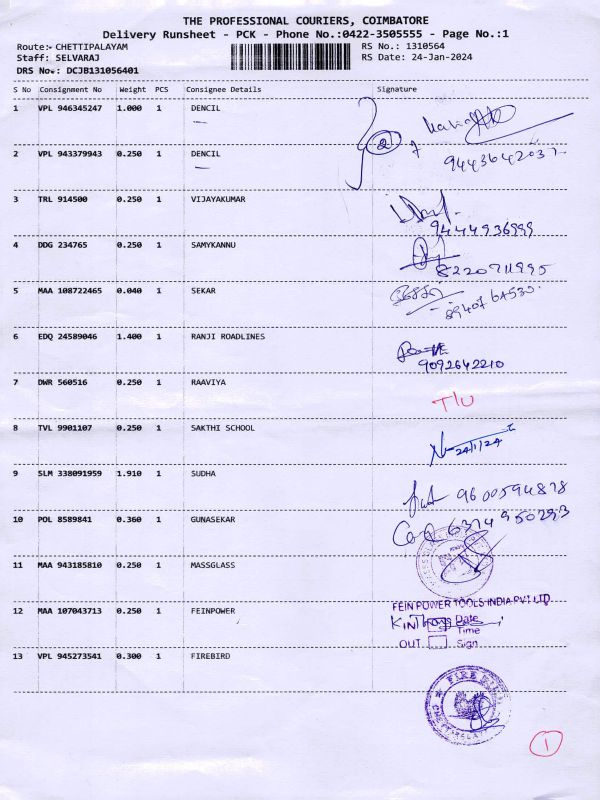 THE PROFESSIONAL COURIERS, COIMBATORE
Delivery Runsheet - PCK - Phone No.:0422-3505555 - Page No.:1
Route:- CHETTIPALAYAM
RS No.: 1310564
Staff: SELVARAJ
RS Date: 24-Jan-2024
DRS No.: DCJB131056401
S No Consignment No Weight PCS Consignee Details Signature
1 VPL 946345247 1.000 1 DENCIL
2
2 VPL 943379943 0.250 1 DENCIL
3 TRL 914500 0.250 1 VIJAYAKUMAR
9444936999
4 DDG 234765 0.250 1 SAMYKANNU
5 MAA 108722465 0.040 1 SEKAR
6 EDQ 24589046 1.400 1 RANJI ROADLINES
9092642210
7 DWR 560516 0.250 1 RAAVIYA
T/U
8 TVL 9901107 0.250 1 SAKTHI SCHOOL
24/1/24
9 SLM 338091959 1.910 1 SUDHA
9600594878
10 POL 8589841 0.360 1 GUNASEKAR
6374950293
11 MAA 943185810 0.250 1 MASSGLASS
12 MAA 107043713 0.250 1 FEINPOWER
FEIN POWER TOOLS INDIA PVT LTD
IN Date
Time
OUT Sign
13 VPL 945273541 0.300 1 FIREBIRD
FIRE BIRD
1